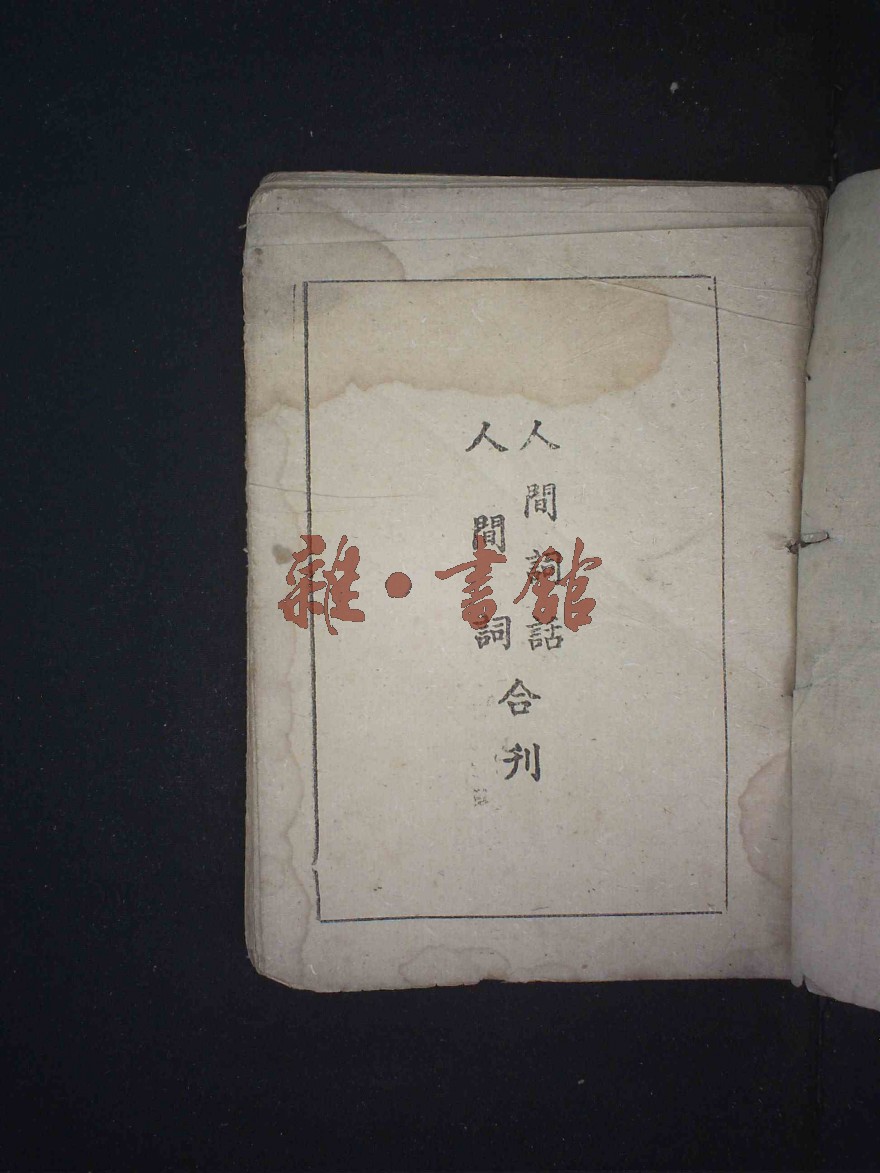 人間詞話
人間詞
合刊
雜·書館